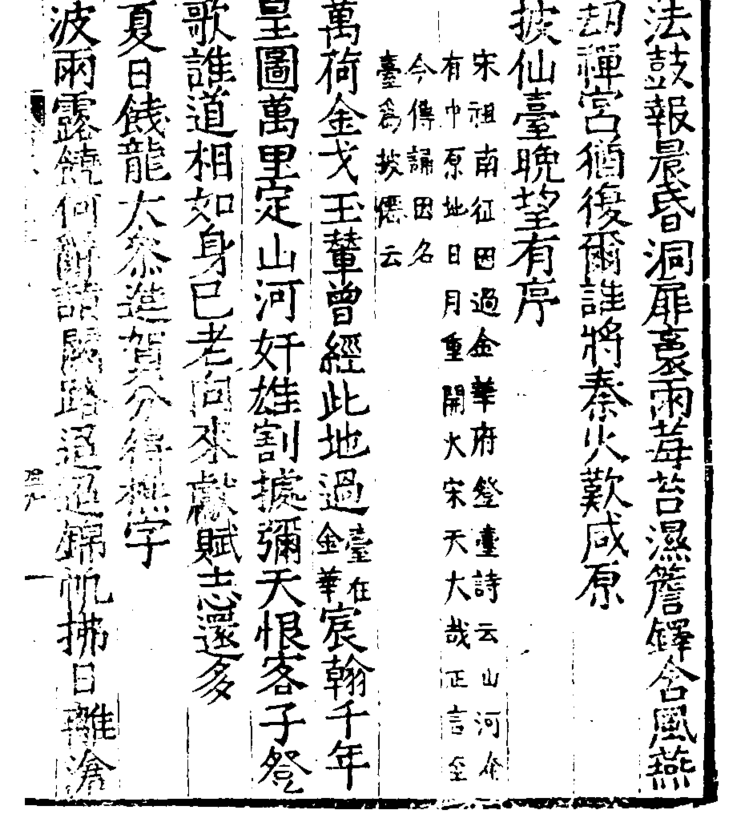 法鼓報晨昏洞扉裏雨莓苔濕簷鐸含風燕
劫禪宮猶復爾誰將秦火歎咸原
披仙臺晚望有序
宋祖南征因過金華府登臺詩云山河
有中原地日月重開大宋天大哉正言至
今傳誦因名
臺爲披僊云
萬荷金戈玉輦曾經此地過臺在金華宸翰千年
皇圖萬里定山河奸雄割據彌天恨客子登
歌誰道相如身已老向來獻賦志還多
夏日餞龍大參進賀分得樵字
波雨露饒何辭請闕路迢迢錦帆拂日離滄